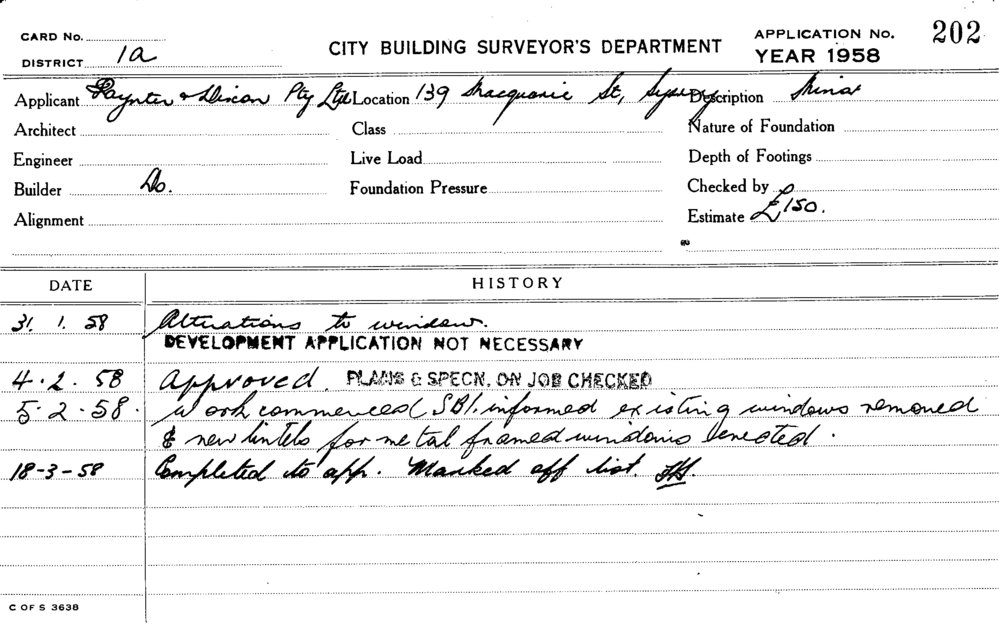 CARD No.
DISTRICT 1a
CITY BUILDING SURVEYOR'S DEPARTMENT
APPLICATION No. 202
YEAR 1958
Applicant Paynter & Dixon Pty Ltd Location 139 Macquarie St, Sydney Description Minor
Architect Class Nature of Foundation
Engineer Live Load Depth of Footings
Builder Do. Foundation Pressure Checked by
Alignment Estimate £150.
DATE HISTORY
31. 1. 58 Alterations to window.
DEVELOPMENT APPLICATION NOT NECESSARY
4. 2. 58 Approved. PLANS & SPECN. ON JOB CHECKED
5. 2. 58. Work commenced SBI. informed existing windows removed
& new lintels for metal framed windows erected.
18-3-58 Completed to app. Marked off list.
C OF S 3638